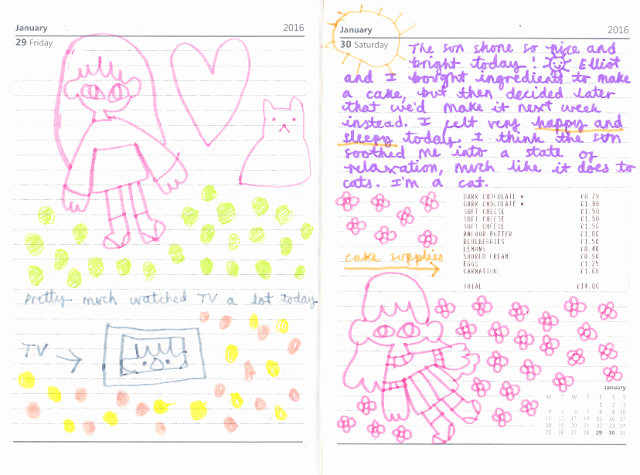 January 2016
29 Friday
Pretty much watched TV a lot today
TV
January 2016
30 Saturday
The sun shone so nice and
bright today! Elliot
and I bought ingredients to make
a cake, but then decided later
that we'd make it next week
instead. I felt very happy and
sleepy today. I think the sun
soothed me into a state of
relaxation, much like it does to
cats. I'm a cat.
DARK CHOCOLATE * £0.79
DARK CHOCOLATE * £1.98
SOFT CHEESE £1.50
SOFT CHEESE £1.50
SOFT CHEESE £1.50
ANCHOR BUTTER £1.00
BLUEBERRIES £1.50
LEMONS £0.40
SOURED CREAM £0.90
EGGS £1.25
CARNATION £1.68
TOTAL £14.00
cake supplies
January